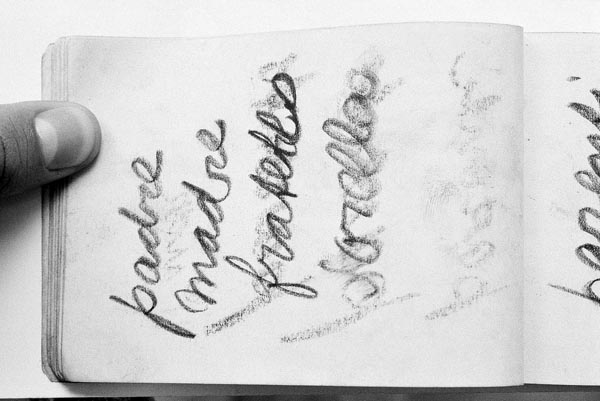 padre
madre
fratello
sorella
parenti